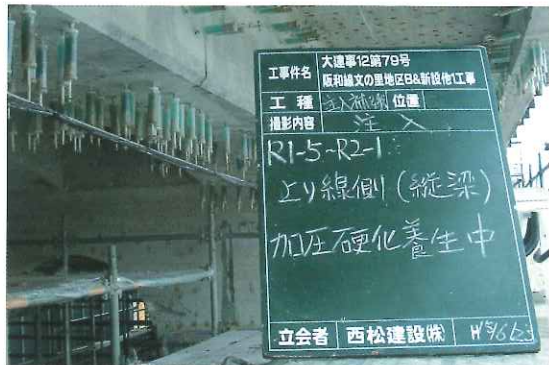 工事件名 大建事12第79号
阪和線文の里地区B&新設他1工事
工種 注入補強 位置
撮影内容 注入
R1-5~R2-1
上り線側(縦梁)
加圧硬化養生中
立会者 西松建設(株)